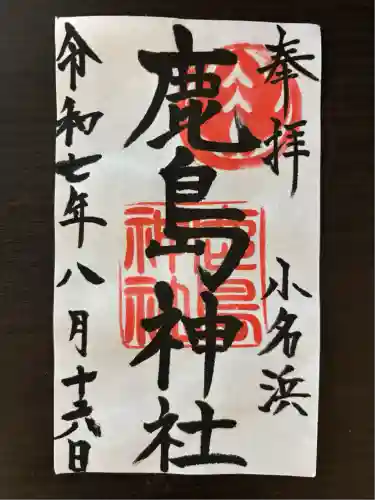 奉拝
小名浜
鹿島神社
鹿島神社
令和七年八月十六日